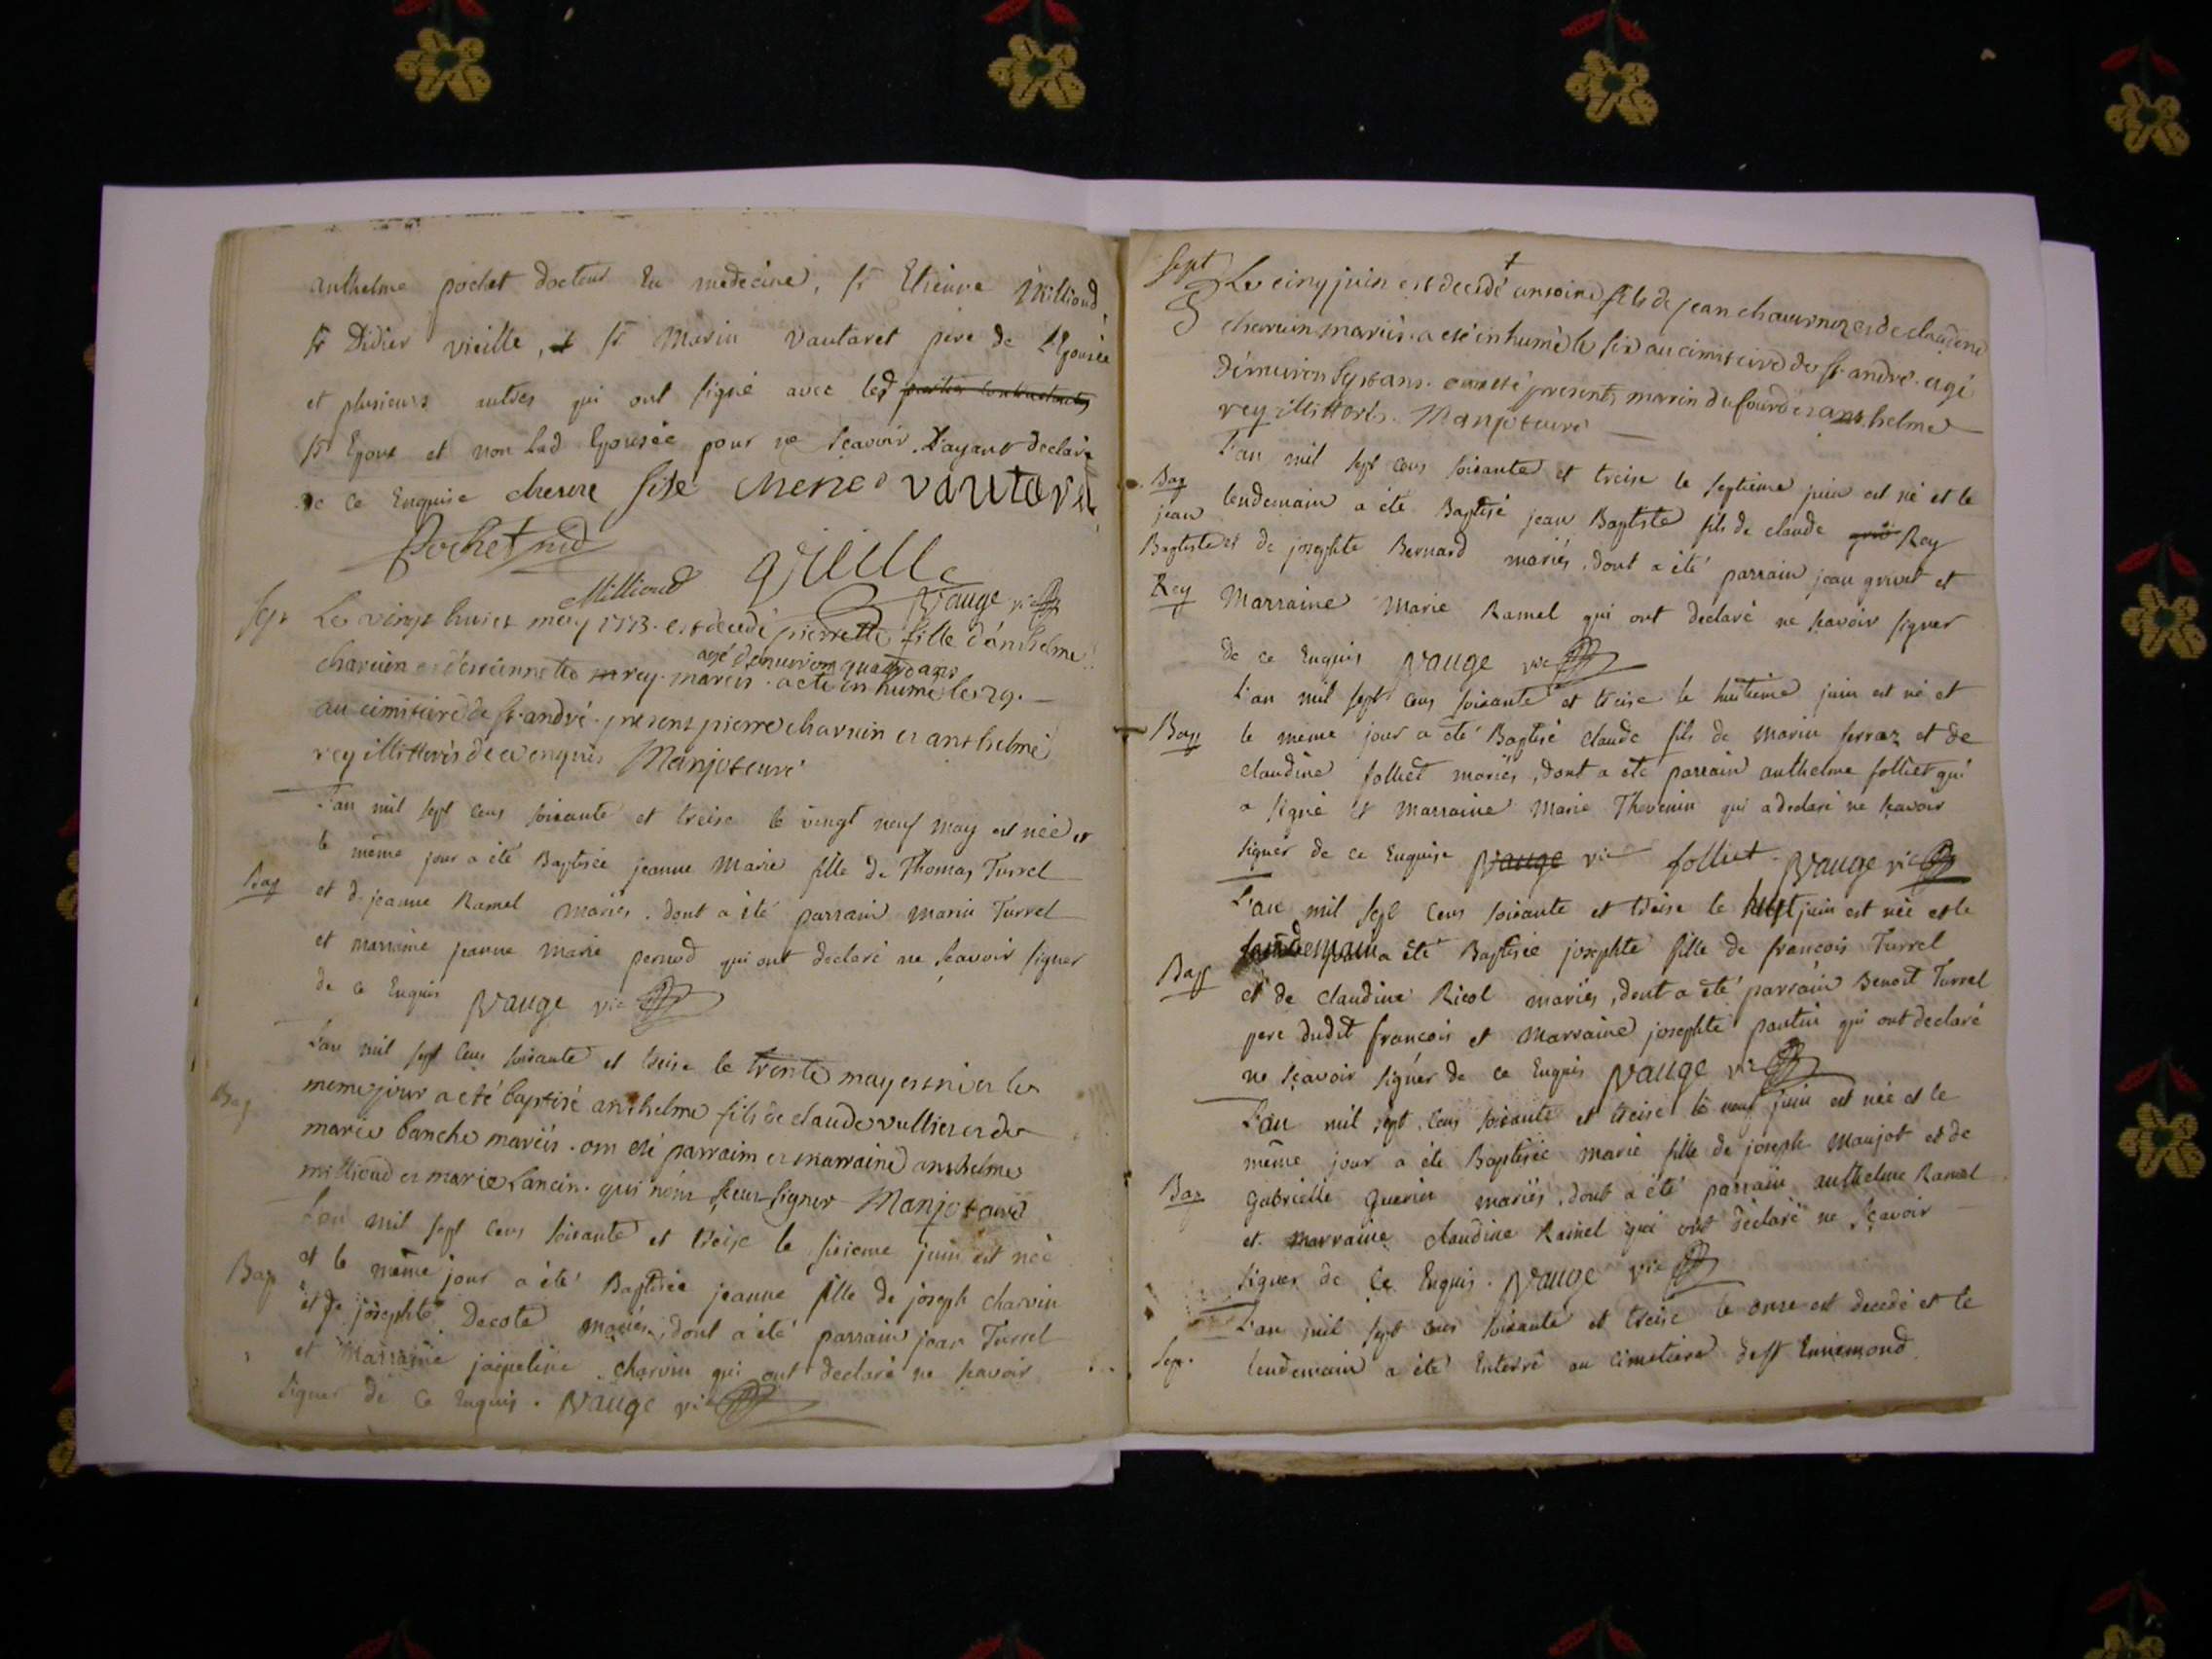 anthelme pochet docteur En medecine, sr Etienne Milliond,
sr Didier vieille, et sr Marin Vautaret pere de L'Epousée
et plusieurs autres qui ont signé avec led parties contractantes
sr Epoux et non Lad Epousée pour ne scavoir. L'ayant declaré
de ce Enquise chesne fise chene vautaret
Pochet md
Milliond vieille
Vauge vic
Sep Le vingt huict mey 1773. est decedé pierrette fille d'anthelme
agé d'environ quattre ans
charvin et d'estiennette rey. mariés. a eté inhumé le 29.
au cimitiere de st. andré. present pierre charvin et anthelme
rey illitterés de ce enquis Manjot curé
L'an mil sept cens soixante et treise le vingt neuf may est née et
le même jour a été Baptisée jeanne Marie fille de Thomas Turrel
Bap et de jeanne Ramel mariés. dont a été parrain Marin Turrel
et marraine jeanne marie pernod qui ont declaré ne scavoir signer
de ce Enquis Vauge vic
L'an mil sept cens soixante et treise le trente may est né et le
Bap meme jour a eté baptisé anthelme fils de claude vullier et de
marie banche mariés. ont eté parrain et marraine anthelme
milliond et marie Lancin. qui n'ont sceu signer Manjot curé
L'an mil sept cens soixante et treise le sixieme juin est née
Bap et le même jour a été Baptisée jeanne fille de joseph charvin
et de josephte Decote mariés, dont a été parrain jean Turrel
et Marraine jaqueline charvin qui ont declaré ne scavoir
signer de ce enquis. Vauge vic
Sept Le cinq juin est decedé antoine fils de jean chavarnoz et de claudine
charvin mariés. a eté inhumé le six au cimitiere de st. andré. agé
d'environ sept ans. ont eté presents marin dufour et anthelme
rey illitterés. Manjot curé
L'an mil sept cens soixante et treise le septieme juin est né et le
Bap lendemain a été Baptisé jean Baptiste fils de claude Rey
jean
Baptiste et de josephte Bernard mariés, dont a été parrain jean grivet et
Rey Marraine Marie Ramel qui ont declaré ne scavoir signer
de ce Enquis Vauge vic
L'an mil sept cens soixante et treise le huitieme juin est né et
Bap le meme jour a été Baptisé claude fils de Marin ferraz et de
claudine folliet mariés, dont a été parrain anthelme folliet qui
a signé et Marraine Marie Thevenin qui a declaré ne scavoir
signer de ce Enquise Vauge vic folliet. Vauge vic
L'an mil sept cens soixante et treise le huit juin est née et le
lendemain a été Baptisée josephte fille de francois Turrel
Bap et de claudine Ricol mariés, dont a été parrain Benoit Turrel
pere dudit francois et Marraine josephte pantin qui ont declaré
ne scavoir signer de ce Enquis Vauge vic
L'an mil sept cens soixante et treise le neuf juin est née et le
même jour a été Baptisée marie fille de joseph Manjot et de
Bap Gabrielle Guerier mariés, dont a été parrain anthelme Ramel
et marraine claudine Ramel qui ont declaré ne scavoir
signer de ce Enquis. Vauge vic
L'an mil sept cens soixante et treise le onse est decedé et le
Sep. lendemain a été Enterré au cimetiere de st Ennemond